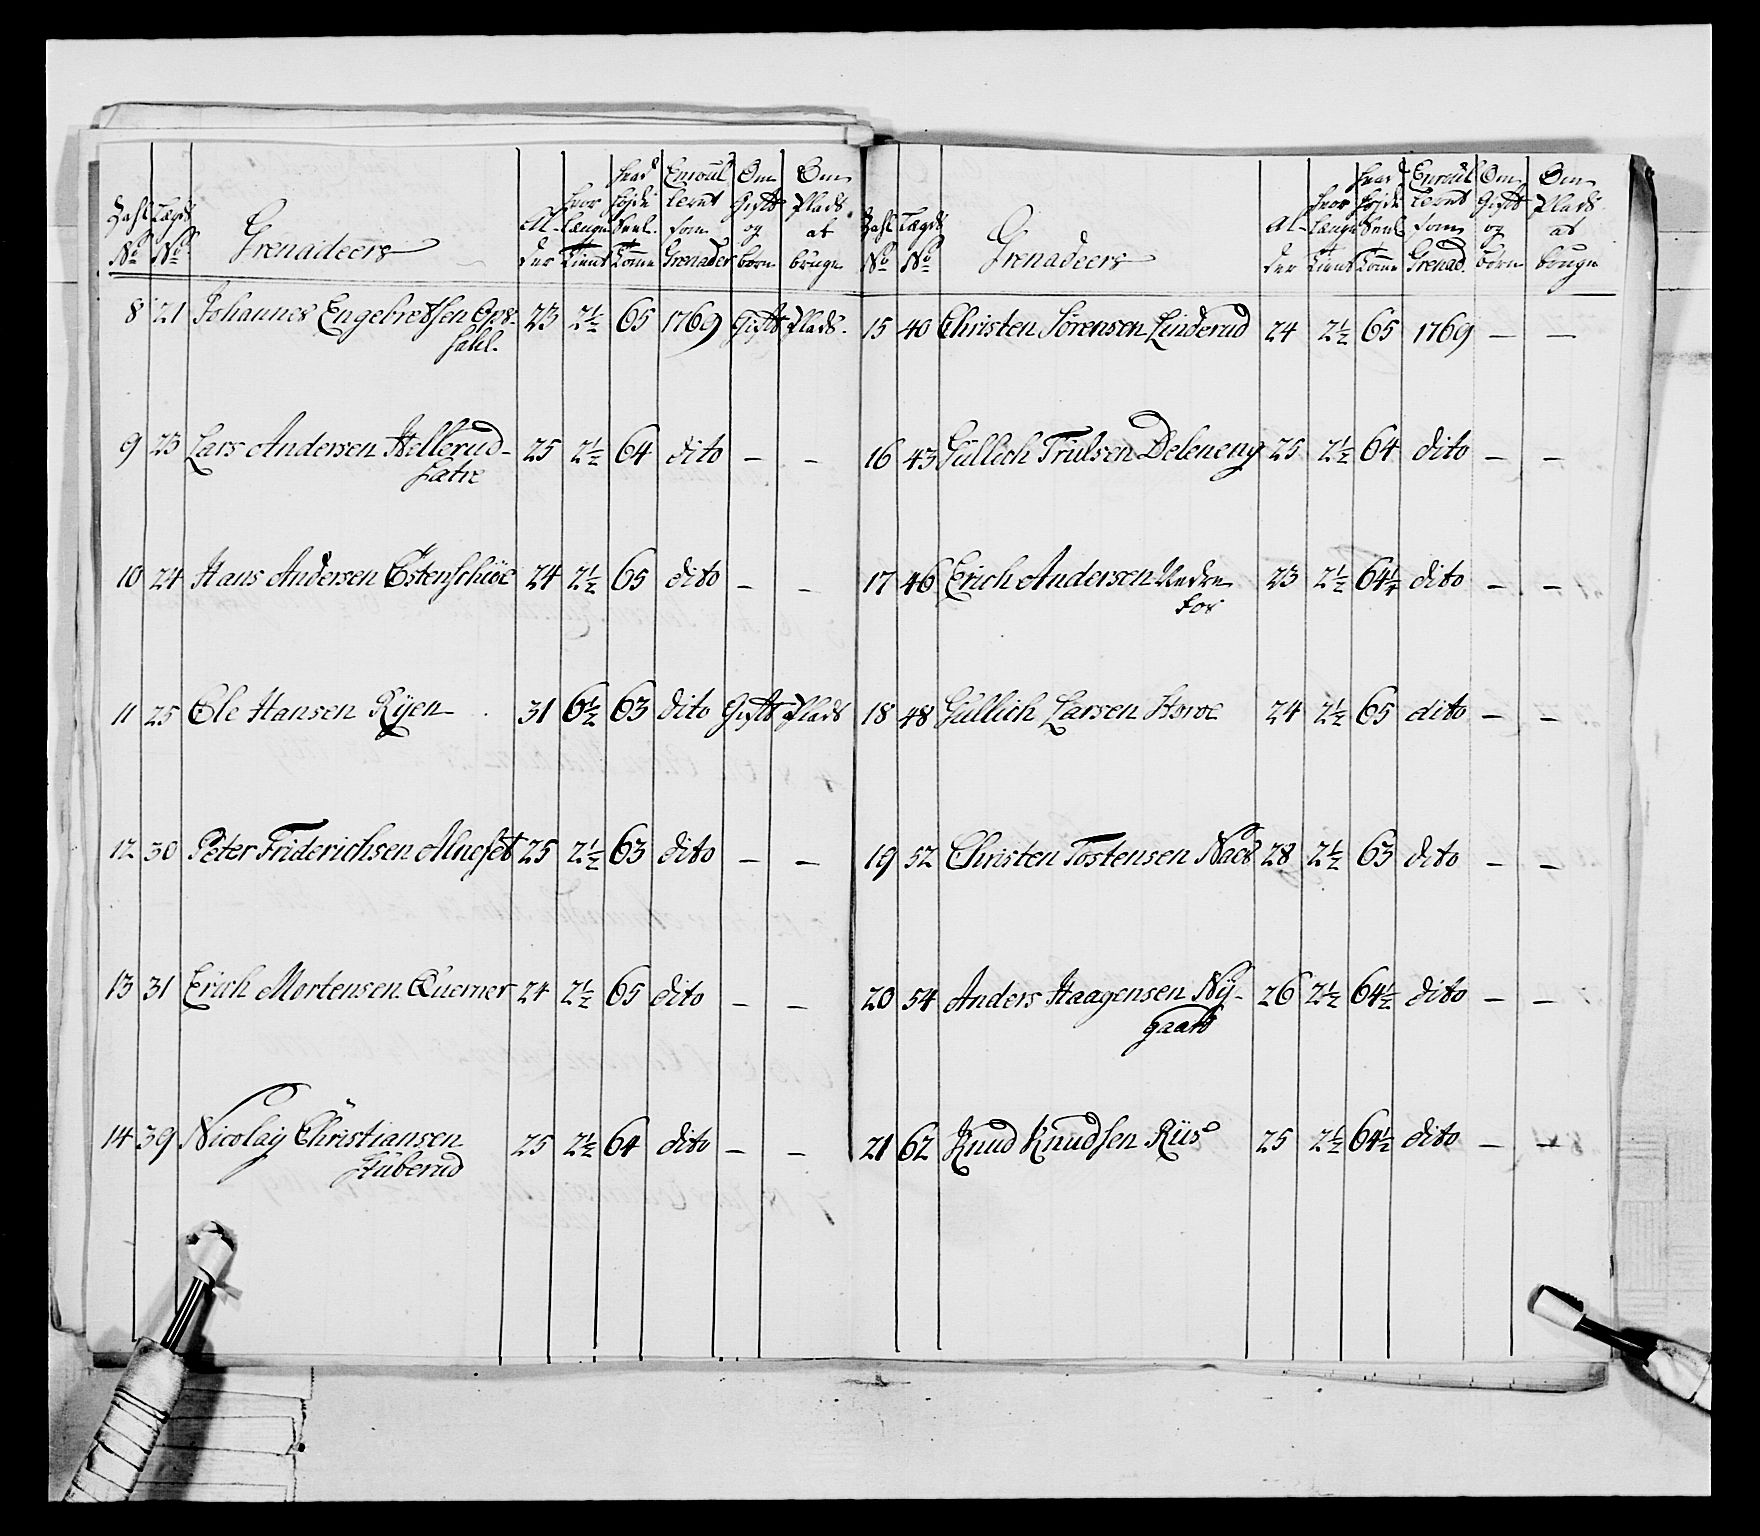 Zahl No Lægds No Grenadeers Al- der hvor længe tient hvad Høyde Enroul- lerut som Grenader Om Gift og børn Om Plads at bruge
8 21 Johannes Engebretsen Ops- 23 2½ 65 1769 Gift Plads.
sahl.
9 23 Lars Andersen Hellerud- 25 2½ 64 dito — —
sætre
10 24 Hans Andersen Østenschiøe 24 2½ 65 dito — —
11 25 Ole Hansen Rÿen 31 6½ 63 dito Gift Plads
12 30 Peter Friderichsen Alneset 25 2½ 63 dito — —
13 31 Erich Mortensen Querner 24 2½ 65 dito — —
14 39 Nicolaÿ Christiansen 25 2½ 64 dito — —
Stuberud
Zahl No Lægds No Grenadeers Al- der hvor længe tient hvad høyde Enroul- lerut som Grenad. Om Gift og børn Om Plads at bruge
15 40 Christen Sørensen Linderud 24 2½ 65 1769 — —
16 43 Gullich Trulsen Deleneng 25 2½ 64 dito — —
17 46 Erich Andersen Nedre 23 2½ 64¼ dito — —
Fos
18 48 Gullich Larsen Hovve 24 2½ 65 dito — —
19 52 Christen Tostensen Næs 28 2½ 63 dito — —
20 54 Anders Haagensen Nÿ- 26 2½ 64½ dito — —
gaard
21 62 Knud Knudsen Riis 25 2½ 64½ dito — —